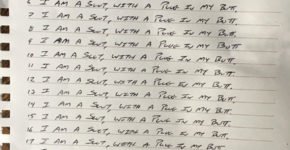 6 I AM A SLUT, WITH A PLUG IN MY BUTT.
7 I AM A SLUT, WITH A PLUG IN MY BUTT.
8 I AM A SLUT, WITH A PLUG IN MY BUTT.
9 I AM A SLUT, WITH A PLUG IN MY BUTT
10 I AM A SLUT, WITH A PLUG IN MY BUTT.
11 I AM A SLUT, WITH A PLUG IN MY BUTT.
12 I AM A SLUT, WITH A PLUG IN MY BUTT.
13 I AM A SLUT, WITH A PLUG IN MY BUTT.
14 I AM A SLUT, WITH A PLUG IN MY BUTT.
15 I AM A SLUT, WITH A PLUG IN MY BUTT.
16 I AM A SLUT, WITH A PLUG IN MY BUTT.
17 I AM A SLUT, WITH A PLUG IN MY BUTT.